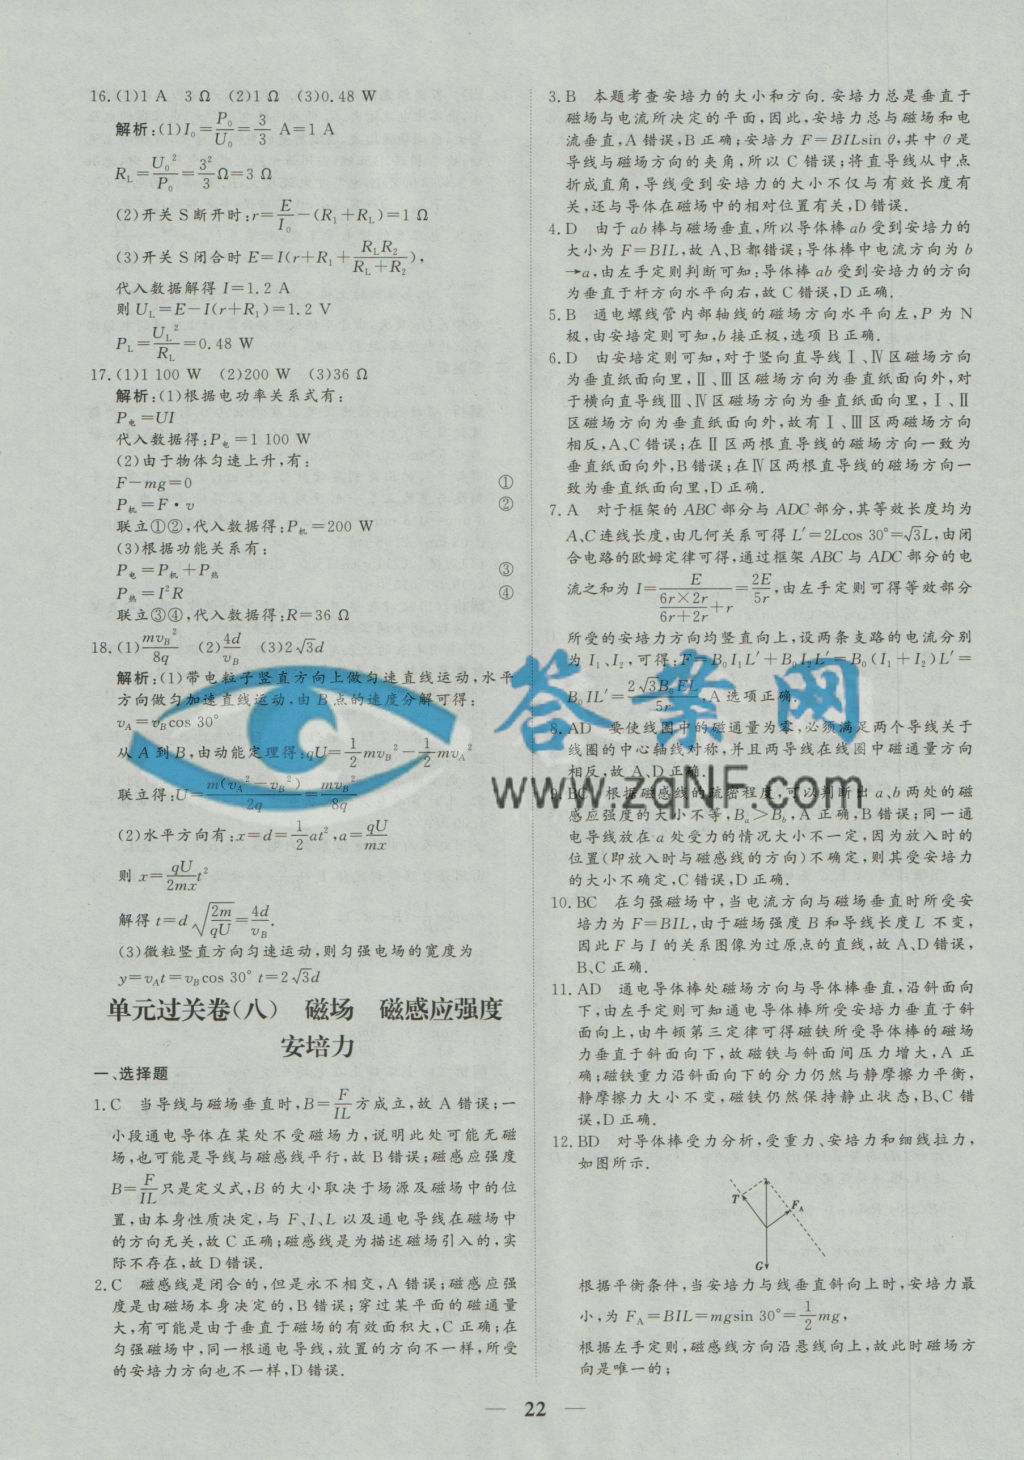 16.(1)1 A　3 Ω　(2)1 Ω　(3)0.48 W
解析:(1)I₀=P₀/U₀=3/3 A=1 A
R_L=U₀²/P₀=3²/3 Ω=3 Ω
(2)开关 S 断开时:r=E/I₀-(R₁+R_L)=1 Ω
(3)开关 S 闭合时 E=I(r+R₁+R_LR₂/(R_L+R₂)),
代入数据解得 I=1.2 A
则 U_L=E-I(r+R₁)=1.2 V
P_L=U_L²/R_L=0.48 W
17.(1)1 100 W　(2)200 W　(3)36 Ω
解析:(1)根据电功率关系式有:
P电=UI
代入数据得:P电=1 100 W
(2)由于物体匀速上升,有:
F-mg=0　①
P机=F·v　②
联立①②,代入数据得:P机=200 W
(3)根据功能关系有:
P电=P机+P热　③
P热=I²R　④
联立③④,代入数据得:R=36 Ω
18.(1)mv_B²/8q　(2)4d/v_B　(3)2√3d
解析:(1)带电粒子竖直方向上做匀速直线运动,水平
方向做匀加速直线运动,由 B 点的速度分解可得:
v_A=v_Bcos 30°
从 A 到 B,由动能定理得:qU=1/2mv_B²-1/2mv_A²
联立得:U=m(v_A²-v_B²)/2q=mv_B²/8q
(2)水平方向有:x=d=1/2at²,a=qU/mx
则 x=qU/2mx t²
解得 t=d√(2m/qU)=4d/v_B.
(3)微粒竖直方向匀速运动,则匀强电场的宽度为
y=v_At=v_Bcos 30° t=2√3d
单元过关卷(八)　磁场　磁感应强度
安培力
一、选择题
1.C　当导线与磁场垂直时,B=F/IL方成立,故 A 错误;一
小段通电导体在某处不受磁场力,说明此处可能无磁
场,也可能是导线与磁感线平行,故 B 错误;磁感应强度
B=F/IL只是定义式,B 的大小取决于场源及磁场中的位
置,由本身性质决定,与 F、I、L 以及通电导线在磁场中
的方向无关,故 C 正确;磁感线是为描述磁场引入的,实
际不存在,故 D 错误.
2.C　磁感线是闭合的,但是永不相交,A 错误;磁感应强
度是由磁场本身决定的,B 错误;穿过某平面的磁通量
大,有可能是由于垂直于磁场的有效面积大,C 正确;在
匀强磁场中,同一根通电导线,放置的方向不一样,所受
的安培力方向也不一样,D 错误.
3.B　本题考查安培力的大小和方向.安培力总是垂直于
磁场与电流所决定的平面,因此,安培力总与磁场和电
流垂直,A 错误,B 正确;安培力 F=BILsin θ,其中 θ 是
导线与磁场方向的夹角,所以 C 错误;将直导线从中点
折成直角,导线受到安培力的大小不仅与有效长度有
关,还与导体在磁场中的相对位置有关,D 错误.
4.D　由于 ab 棒与磁场垂直,所以导体棒 ab 受到安培力的
大小为 F=BIL,故 A、B 都错误;导体棒中电流方向为 b
→a,由左手定则判断可知:导体棒 ab 受到安培力的方向
为垂直于杆方向水平向右,故 C 错误,D 正确.
5.B　通电螺线管内部轴线的磁场方向水平向左,P 为 N
极,由安培定则可知,b 接正极,选项 B 正确.
6.D　由安培定则可知,对于竖向直导线Ⅰ、Ⅳ区磁场方向
为垂直纸面向里,Ⅱ、Ⅲ区磁场方向为垂直纸面向外,对
于横向直导线Ⅲ、Ⅳ区磁场方向为垂直纸面向里,Ⅰ、Ⅱ
区磁场方向为垂直纸面向外,故有Ⅰ、Ⅲ区两磁场方向
相反,A、C 错误;在Ⅱ区两根直导线的磁场方向一致为
垂直纸面向外,B 错误;在Ⅳ区两根直导线的磁场方向一
致为垂直纸面向里,D 正确.
7.A　对于框架的 ABC 部分与 ADC 部分,其等效长度均为
A、C 连线长度,由几何关系可得 L′=2Lcos 30°=√3L,由闭
合电路的欧姆定律可得,通过框架 ABC 与 ADC 部分的电
流之和为 I=E/((6r×2r)/(6r+2r)+r)=2E/5r,由左手定则可得等效部分
所受的安培力方向均竖直向上,设两条支路的电流分别
为 I₁、I₂,可得:F=B₀I₁L′+B₀I₂L′=B₀(I₁+I₂)L′=
B₀IL′=2√3B₀EL/5r,A 选项正确.
8.AD　要使线圈中的磁通量为零,必须满足两个导线关于
线圈的中心轴线对称,并且两导线在线圈中磁通量方向
相反,故 A、D 正确.
9.BC　根据磁感线的疏密程度,可以判断出 a、b 两处的磁
感应强度的大小不等,Bₐ>B_b,A 正确,B 错误;同一通
电导线放在 a 处受力的情况大小不一定,因为放入时的
位置(即放入时与磁感线的方向)不确定,则其受安培力
的大小不确定,C 错误,D 正确.
10.BC　在匀强磁场中,当电流方向与磁场垂直时所受安
培力为 F=BIL,由于磁场强度 B 和导线长度 L 不变,
因此 F 与 I 的关系图像为过原点的直线,故 A、D 错误,
B、C 正确.
11.AD　通电导体棒处磁场方向与导体棒垂直,沿斜面向
下,由左手定则可知通电导体棒所受安培力垂直于斜
面向上,由牛顿第三定律可得磁铁所受导体棒的磁场
力垂直于斜面向下,故磁铁与斜面间压力增大,A 正
确;磁铁重力沿斜面向下的分力仍然与静摩擦力平衡,
静摩擦力大小不变,磁铁仍然保持静止状态,B、C 错
误,D 正确.
12.BD　对导体棒受力分析,受重力、安培力和细线拉力,
如图所示.
T
F_A
G
根据平衡条件,当安培力与线垂直斜向上时,安培力最
小,为 F_A=BIL=mgsin 30°=1/2mg,
根据左手定则,磁感线方向沿悬线向上,故此时磁场方
向是唯一的;
22
答案网
www.zqNF.com